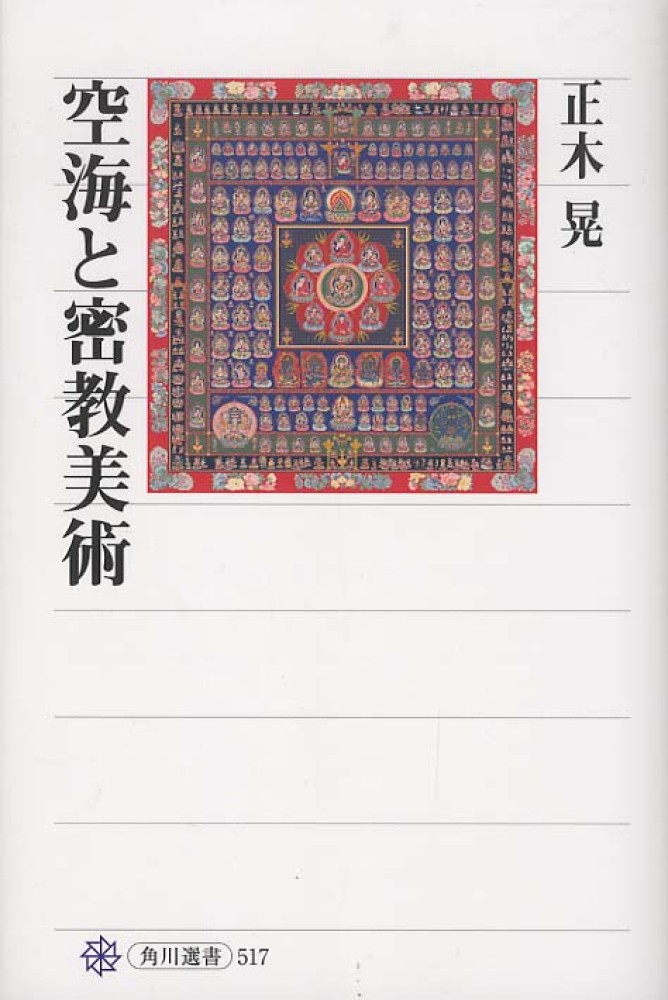 正木 晃
空海と密教美術
角川選書 517